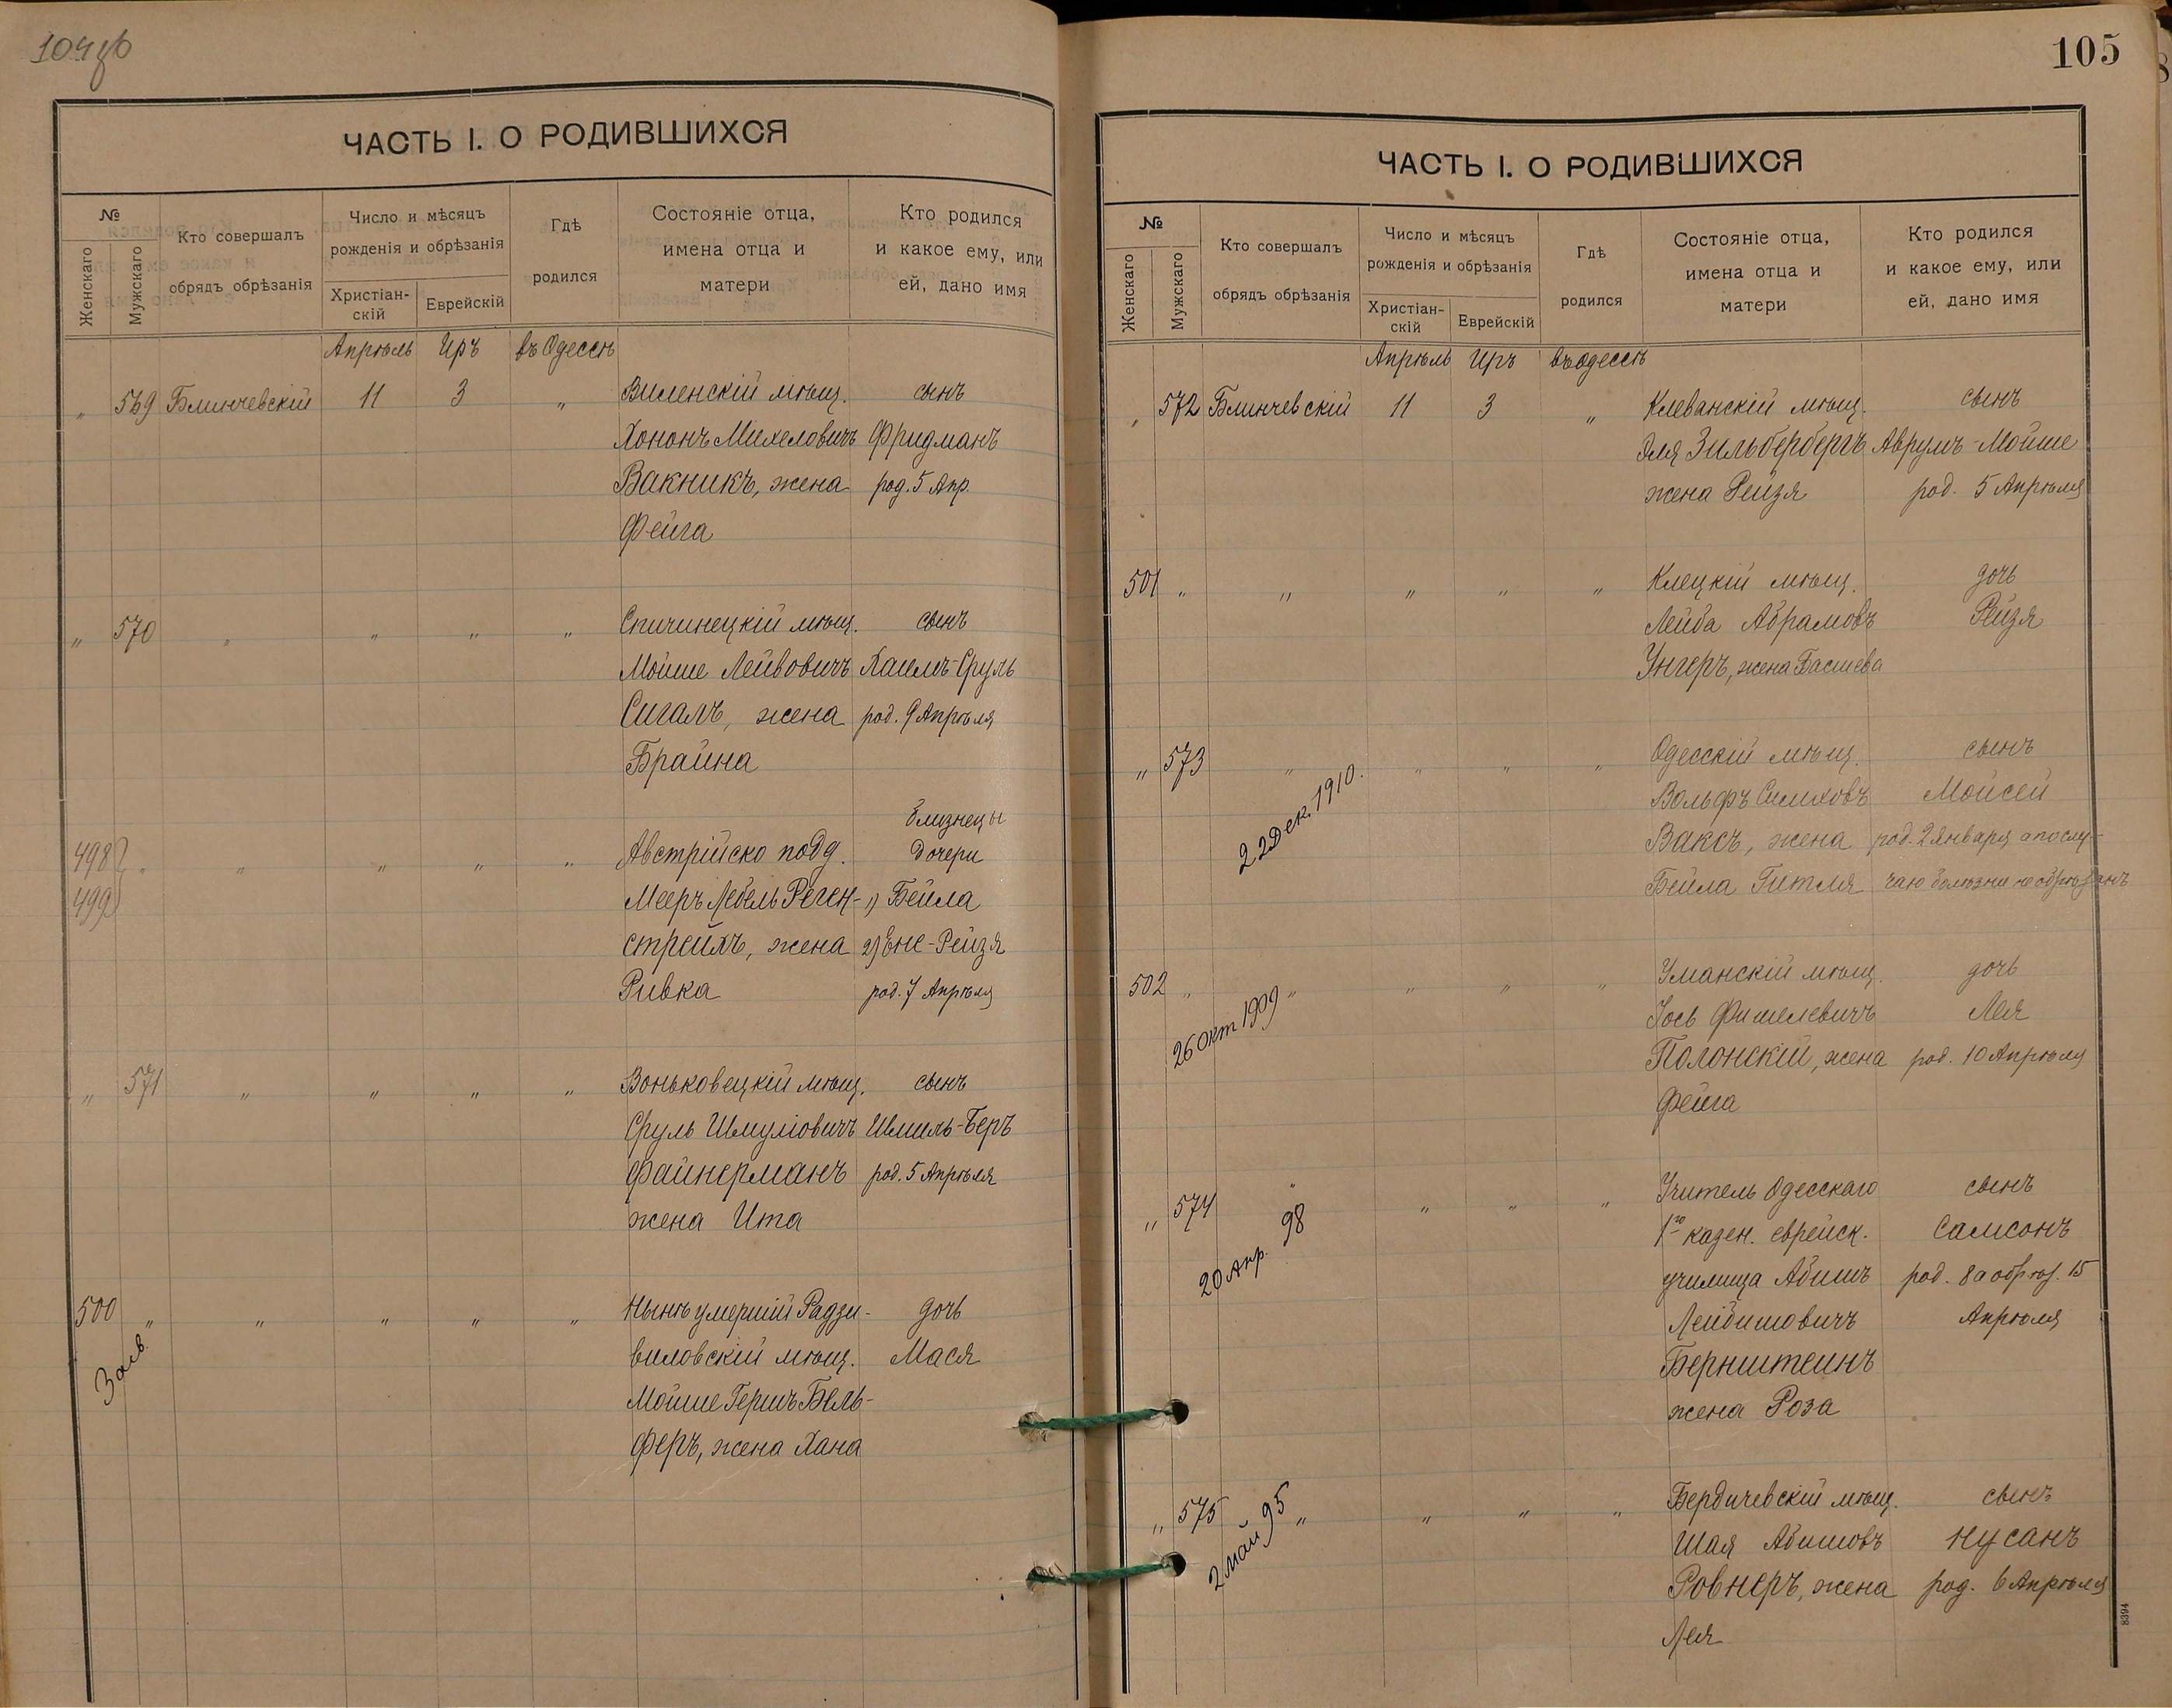 104об
ЧАСТЬ I. О РОДИВШИХСЯ
№
Женскаго
Мужскаго
Кто совершалъ
обрядъ обрѣзанія
Число и мѣсяцъ
рожденія и обрѣзанія
Христіан-
скій
Еврейскій
Гдѣ
родился
Состояніе отца,
имена отца и
матери
Кто родился
и какое ему, или
ей, дано имя
Апрѣль Иръ въ Одессѣ
„ 569 Блинчевскій 11 3 „ Виленскій мѣщ. сынъ
Хононъ Михеловичъ Фридманъ
Вакникъ, жена род. 5 Апр.
Фейга
„ 570 „ „ „ „ Спичинецкій мѣщ. сынъ
Мойше Лейвовичъ Хаимъ-Сруль
Сигалъ, жена род. 9 Апрѣля
Брайна
близнецы
498 „ „ „ „ „ Австрійско подд. дочери
499 Мееръ Лебель Реген- 1) Бейла
стрейхъ, жена 2) Ене-Рейзя
Ривка род. 7 Апрѣля
„ 571 „ „ „ „ Воньковецкій мѣщ. сынъ
Сруль Шмуліовичъ Шмиль-Беръ
Файнерманъ род. 5 Апрѣля
жена Ита
500 „ „ „ „ „ Нынѣ умершій Радзи- дочь
виловскій мѣщ. Мася
Мойше Гершъ Бель-
феръ, жена Хана
105
ЧАСТЬ I. О РОДИВШИХСЯ
№
Женскаго
Мужскаго
Кто совершалъ
обрядъ обрѣзанія
Число и мѣсяцъ
рожденія и обрѣзанія
Христіан-
скій
Еврейскій
Гдѣ
родился
Состояніе отца,
имена отца и
матери
Кто родился
и какое ему, или
ей, дано имя
Апрѣль Иръ въ Одессѣ
„ 572 Блинчевскій 11 3 „ Клеванскій мѣщ. сынъ
Эля Зильбербергъ Аврумъ-Мойше
жена Рейзя род. 5 Апрѣля
501 „ „ „ „ „ Клецкій мѣщ. дочь
Лейба Абрамовъ Рейзя
Унгеръ, жена Басшева
„ 573 „ „ „ „ Одесскій мѣщ. сынъ
22 Дек. 1910.
Вольфъ Симховъ Мойсей
Ваксъ, жена род. 2 Января а послу-
Бейла Гитля чаю болѣзни не обрѣзанъ
502 „ „ „ „ „ Уманскій мѣщ. дочь
26 Окт 1909
Іось Фишелевичъ Лея
Полонскій, жена род. 10 Апрѣля
Фейга
„ 574 „ „ „ „ Учитель Одесскаго сынъ
20 Апр. 98
1го казен. еврейск. Самсонъ
училища Абишъ род. 8 а обрѣз. 15
Лейбишовичъ Апрѣля
Бернштейнъ
жена Роза
„ 575 „ „ „ „ Бердичевскій мѣщ. сынъ
2 Май 95
Шая Абишовъ Нусанъ
Ровнеръ, жена род. 6 Апрѣля
Лея
8394